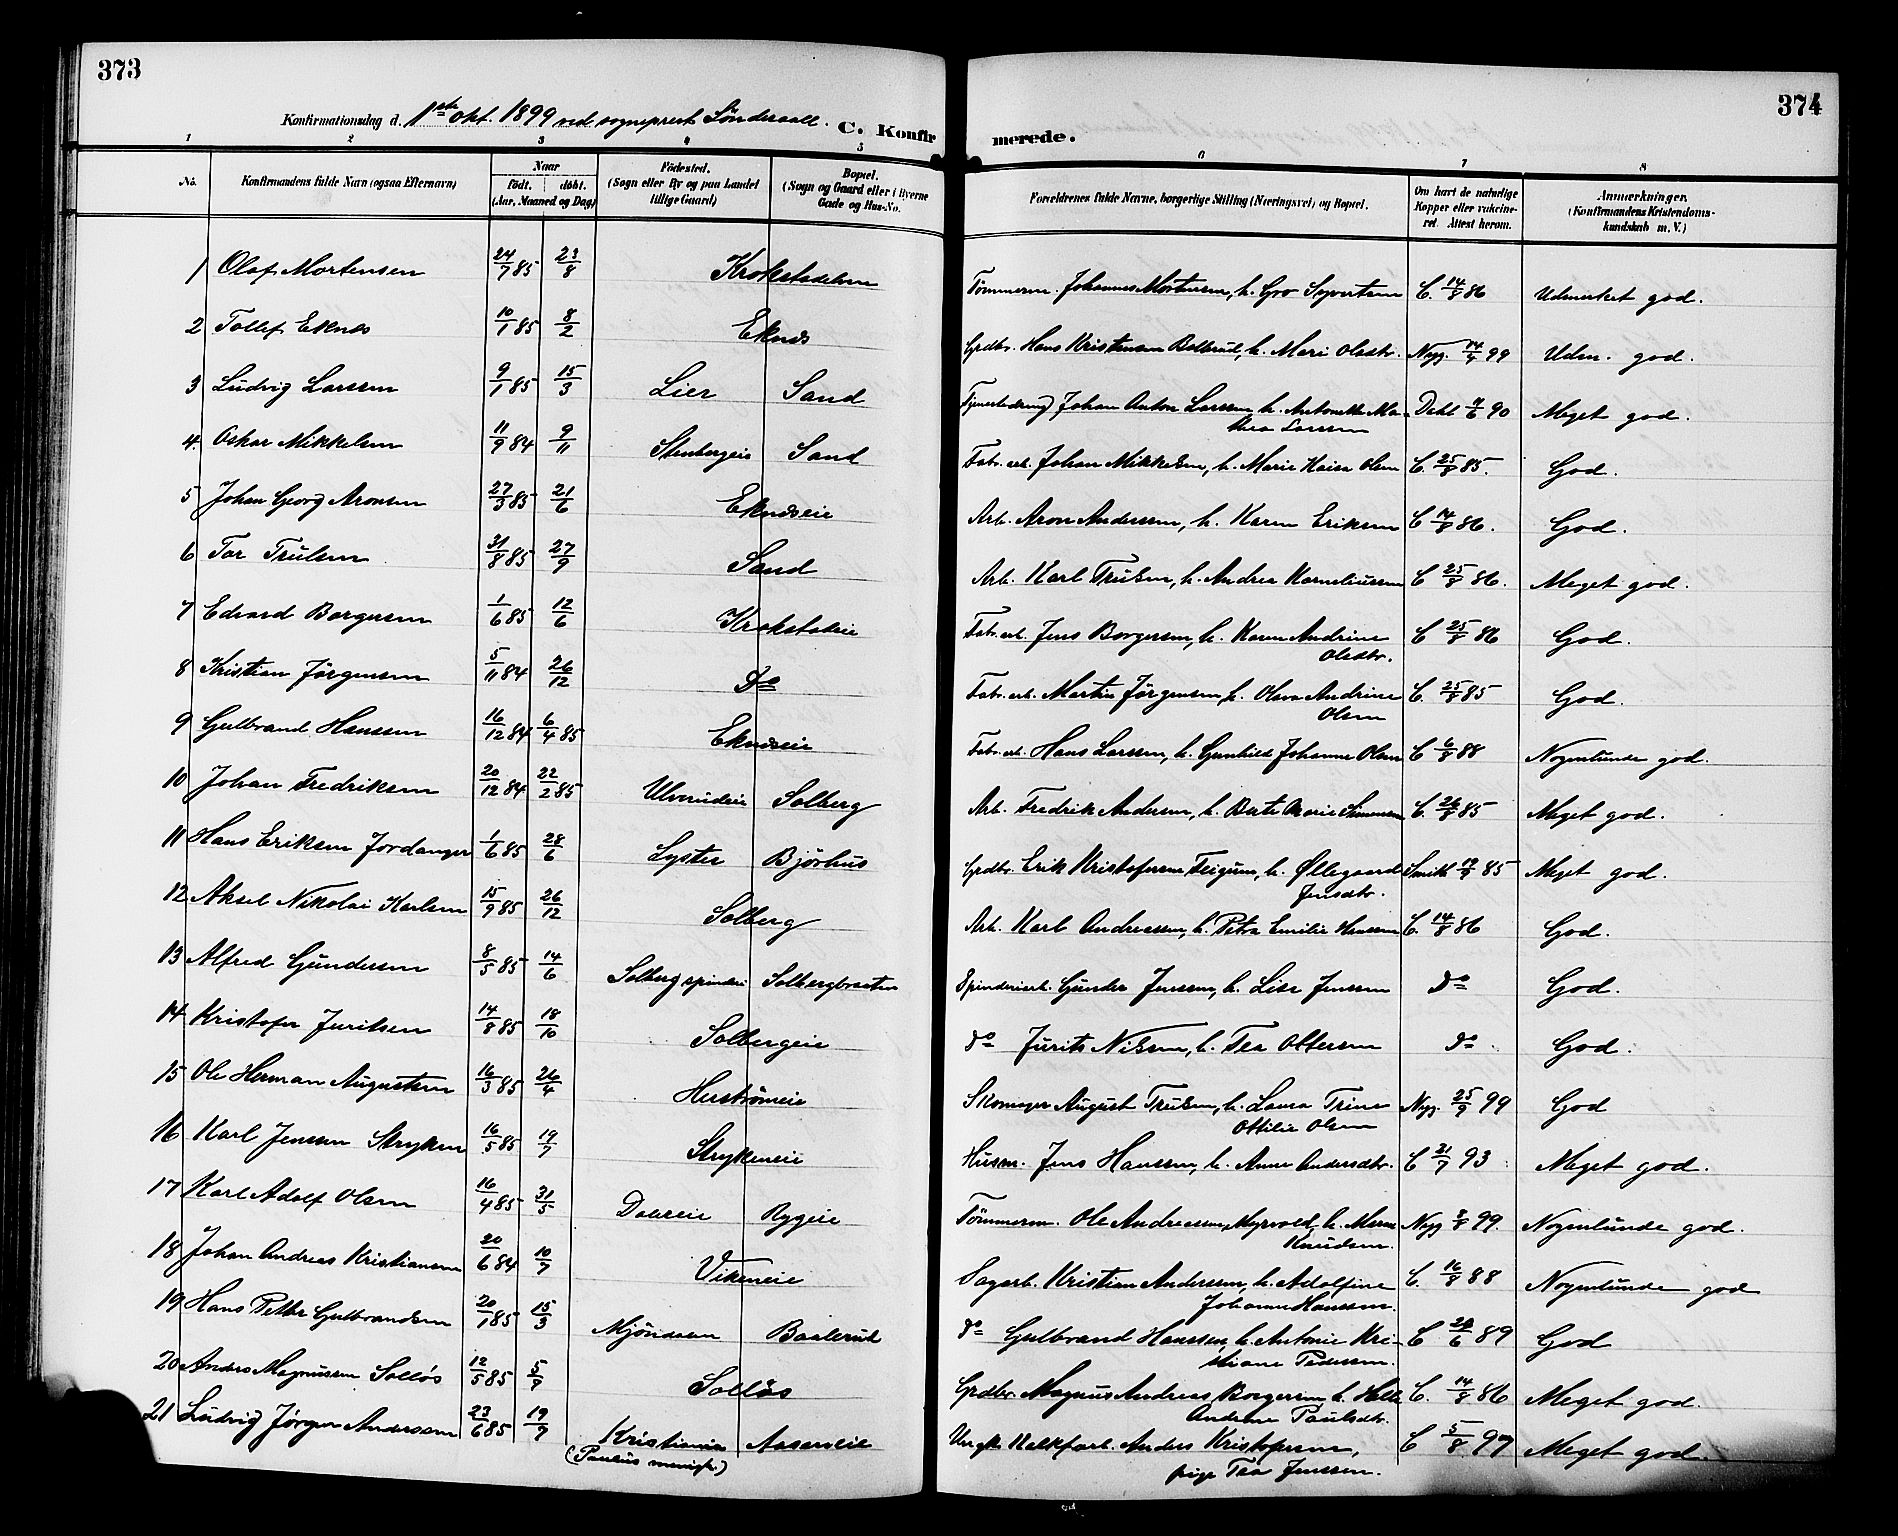 373
374
Konfirmationsdag d. 1ste okt. 1899 ved sogneprest Sönderaall. C. Konfir merede.
1 2 3 4 5 6 7 8
No. Konfirmandens fulde Navn (ogsaa Efternavn) Naar født. døbt. (Aar, Maaned og Dag) Födested. (Sogn eller By og paa Landet tillige Gaard) Bopæl. (Sogn og Gaard eller i Byerne Gade og Hus-No. Forældrenes fulde Navne, borgerlige Stilling (Næringsvei) og Bopæl. Om havt de naturlige Kopper eller vakcineret. Attest herom. Anmærkninger. (Konfirmandens Kristendomskundskab m. V.)
1 Olaf Mortensen 24/7 85 23/8 Krokstadelven Tømmerm. Johannes Mortensen, h. Gro Syvertsen C. 14/8 86 Udmerket god.
2 Tollef Eknes 10/1 85 8/2 Eknes Grdbr. Hans Kristensen Bolbrud, h. Mari Olsdtr. Nyg. 14/9 99 Udm. god.
3 Ludvig Larssen 9/1 85 15/3 Lier Sand Johan Anton Larssen, h. Antonette Mathea Larssen Dahl 90 Meget god.
4. Oskar Mikkelsen 11/9 84 9/11 Stenbergeie Sand Fabr. arb. Johan Mikkelsen, h. Marie Kaisa Olsen C. 25/8 85. God.
5 Johan Georg Aronsen 27/3 85 21/6 Ekneseie Arb. Aron Anderssen, h. Karen Eriksen C 14/8 86. God.
6 Tor Trulsen 31/8 85 27/9 Sand Arb. Karl Trulsen, h. Andrea Korneliussen C 25/8 86. Meget god.
7 Edvard Borgersen 1/6 85 12/6 Krokstadeie Fabr. arb. Jens Borgersen, h. Karen Andrine Olsdtr. C 25/8 86 God.
8 Kristian Jörgensen 5/11 84 26/12 Do Fabr. arb. Martin Jörgensen, h. Olava Andrine Olsen C. 25/8 85 God.
9 Gulbrand Hanssen 16/12 84 6/4 85 Ekneseie Fabr. arb. Hans Larssen, h. Gunhild Johanne Olsen C 6/8 88 Nogenlunde god.
10 Johan Fredriksen 20/12 84 22/2 85 Ulverudeie Solberg Arb. Fredrik Andersen, h. Berte Marie Simensen C. 85 Meget god.
11 Hans Eriksen Jordanger 1/6 85 28/6 Lyster Bjórhus Grdbr. Erik Kristofersen Feigum, h. Øllegaard Jensdtr. Smith 85 Meget god.
12 Aksel Nikolai Karlsen 15/9 85 26/12 Solberg Arb. Karl Andreassen, h. Petra Emilie Hanssen C. 14/8 86 God.
13 Alfred Gundersen 8/5 85 14/6 Solberg spinderi Solbergbraaten Spinderiarb. Gunder Jenssen, h. Lise Jenssen Do God.
14 Kristofer Juritsen 14/8 85 18/10 Solbergeie do Jurits Nilsen, h. Tea Ottersen do God.
15 Ole Herman Augustsen 16/3 85 26/4 Herströmeie Skomager August Trulsen, h. Laura Trine Ottilie Olsen Nyg. 25/9 99 God
16 Karl Jenssen Stryken 16/5 85 19/7 Strykeneie Husm. Jens Hanssen, h. Anne Andersdtr. C 21/7 93 Meget god.
17 Karl Adolf Olsen 16/4 85 31/5 Daareie Rygeie Tömmerm. Ole Andreassen Myrvold, h. Maren Knudsen. Nyg 99. Nogenlunde god.
18 Johan Andreas Kristiansen 20/6 84 10/7 Vikeneie Sagarb. Kristian Anderssen, h. Adolfine Johanne Hanssen. C. 16/8 88 Nogenlunde god
19 Hans Petter Gulbrandsen 20/1 85 15/3 Mjöndalen Baalerud do Gulbrand Hanssen, h. Antonie Kristiane Pedersen. C 89 God
20 Anders Magnussen Solløs 12/5 85 5/7 Solløs Grdbr. Magnus Andreas Borgersen h. Helle Andrine Paulsdtr. C. 14/8 86 Meget god.
21 Ludvig Jörgen Anderssen 23/6 85 19/7 Kristiania (Paulus menigh.) Aaserudeie Ungk. Anders Kristofersen, pige Tea Jenssen. C 5/8 97 Meget god.